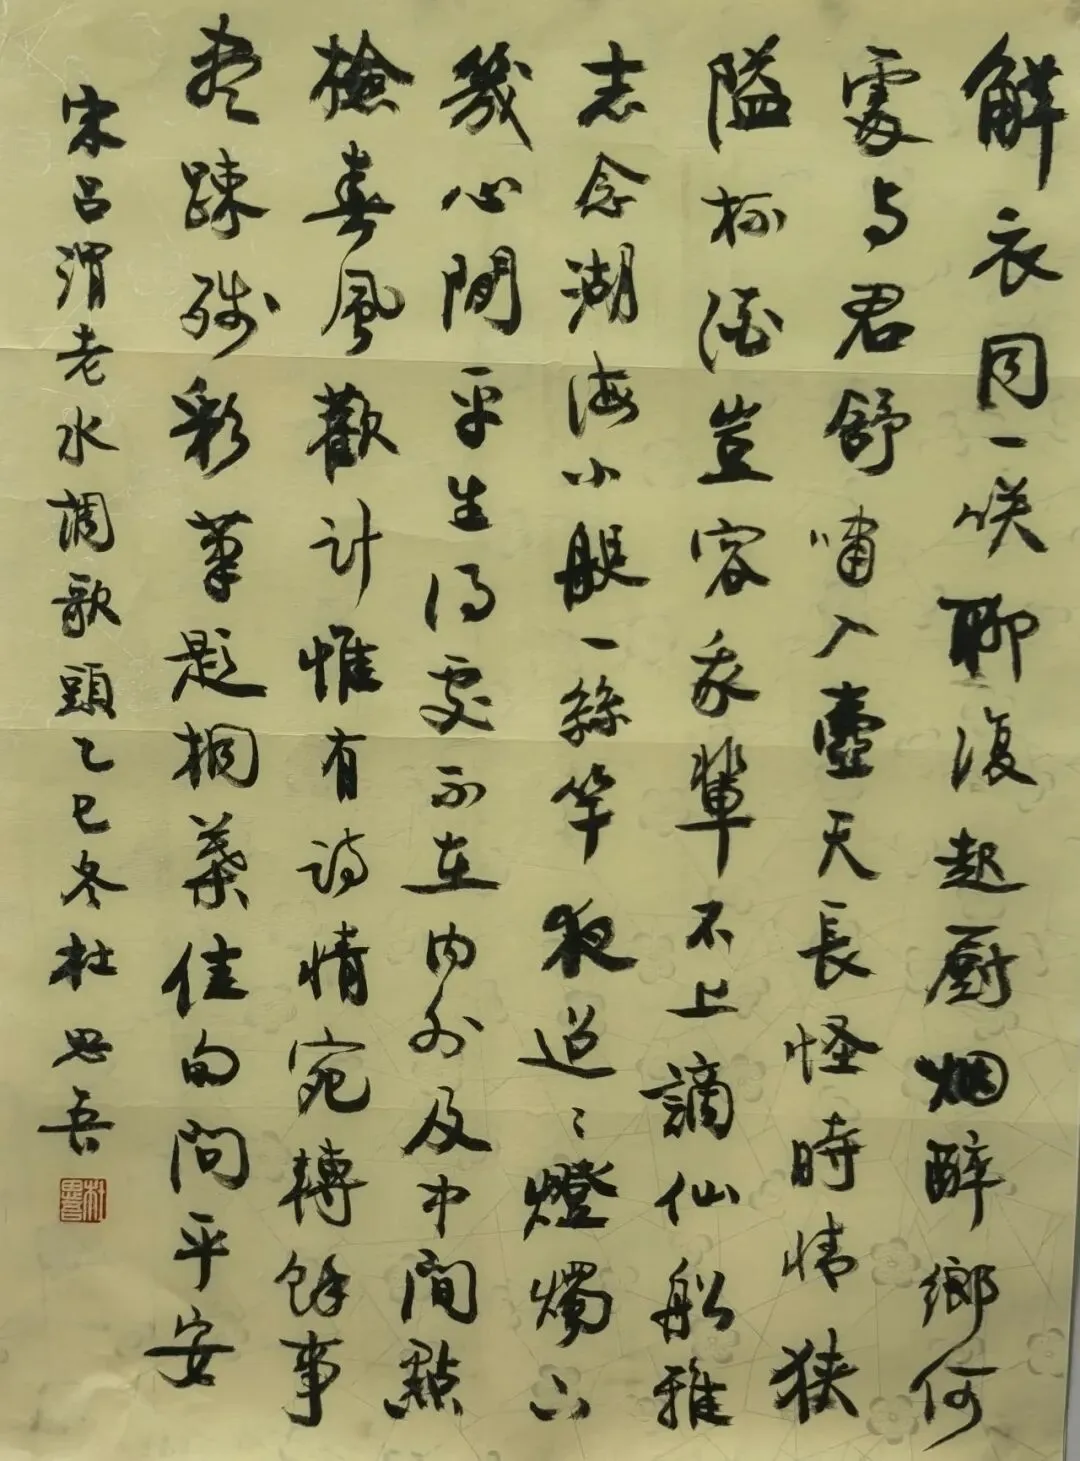 解衣同一咲聊復起厨烟醉鄉何
處与君舒嘯入壺天長怪時情狭
隘杯酒豈容我輩不上謫仙船雅
志念湖海小艇一絲竿夜迢々燈燭下
幾心閒平生得處不在内外及中間點
檢春風歡計惟有詩情宛轉餘事
盡踈殘彩筆題桐葉佳句問平安
宋吕渭老水調歌頭乙巳冬杜思吾